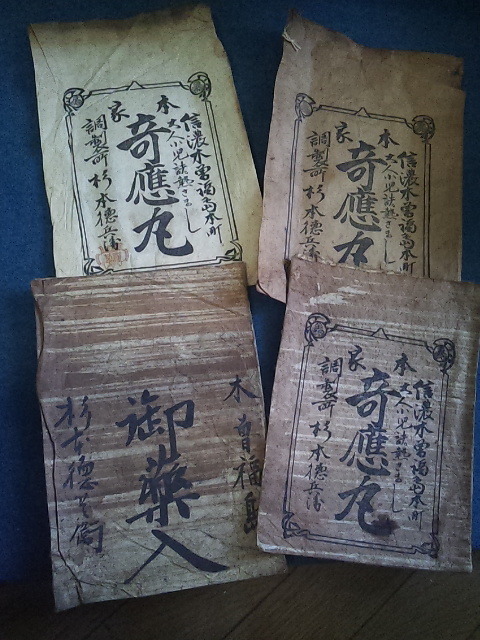 信濃木曽福島本町
大人小児諸熱さまし
本家
奇應丸
調製所 杉本徳兵衛
信濃木曽福島本町
大人小児諸熱さまし
本家
奇應丸
調製所
木曽福島
御藥入
杉本徳兵衛
信濃木曽福島本町
大人小児諸熱さまし
本家
奇應丸
調製所 杉本徳兵衛